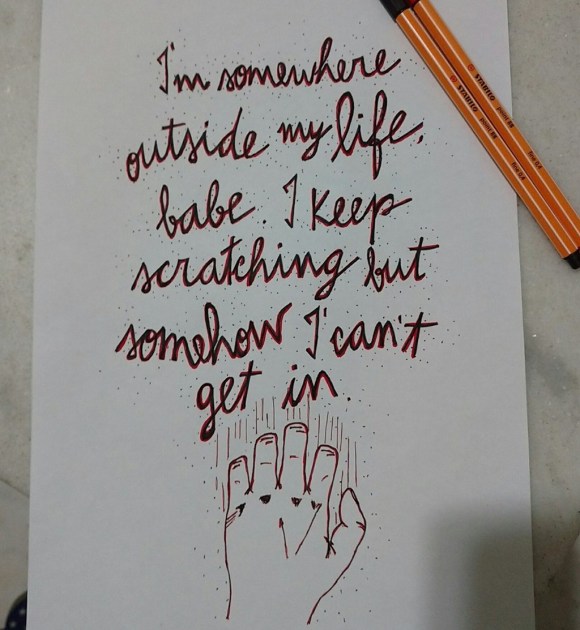 I'm somewhere
outside my life,
babe. I keep
scratching but
somehow I can't
get in.
STABILO
STABILO